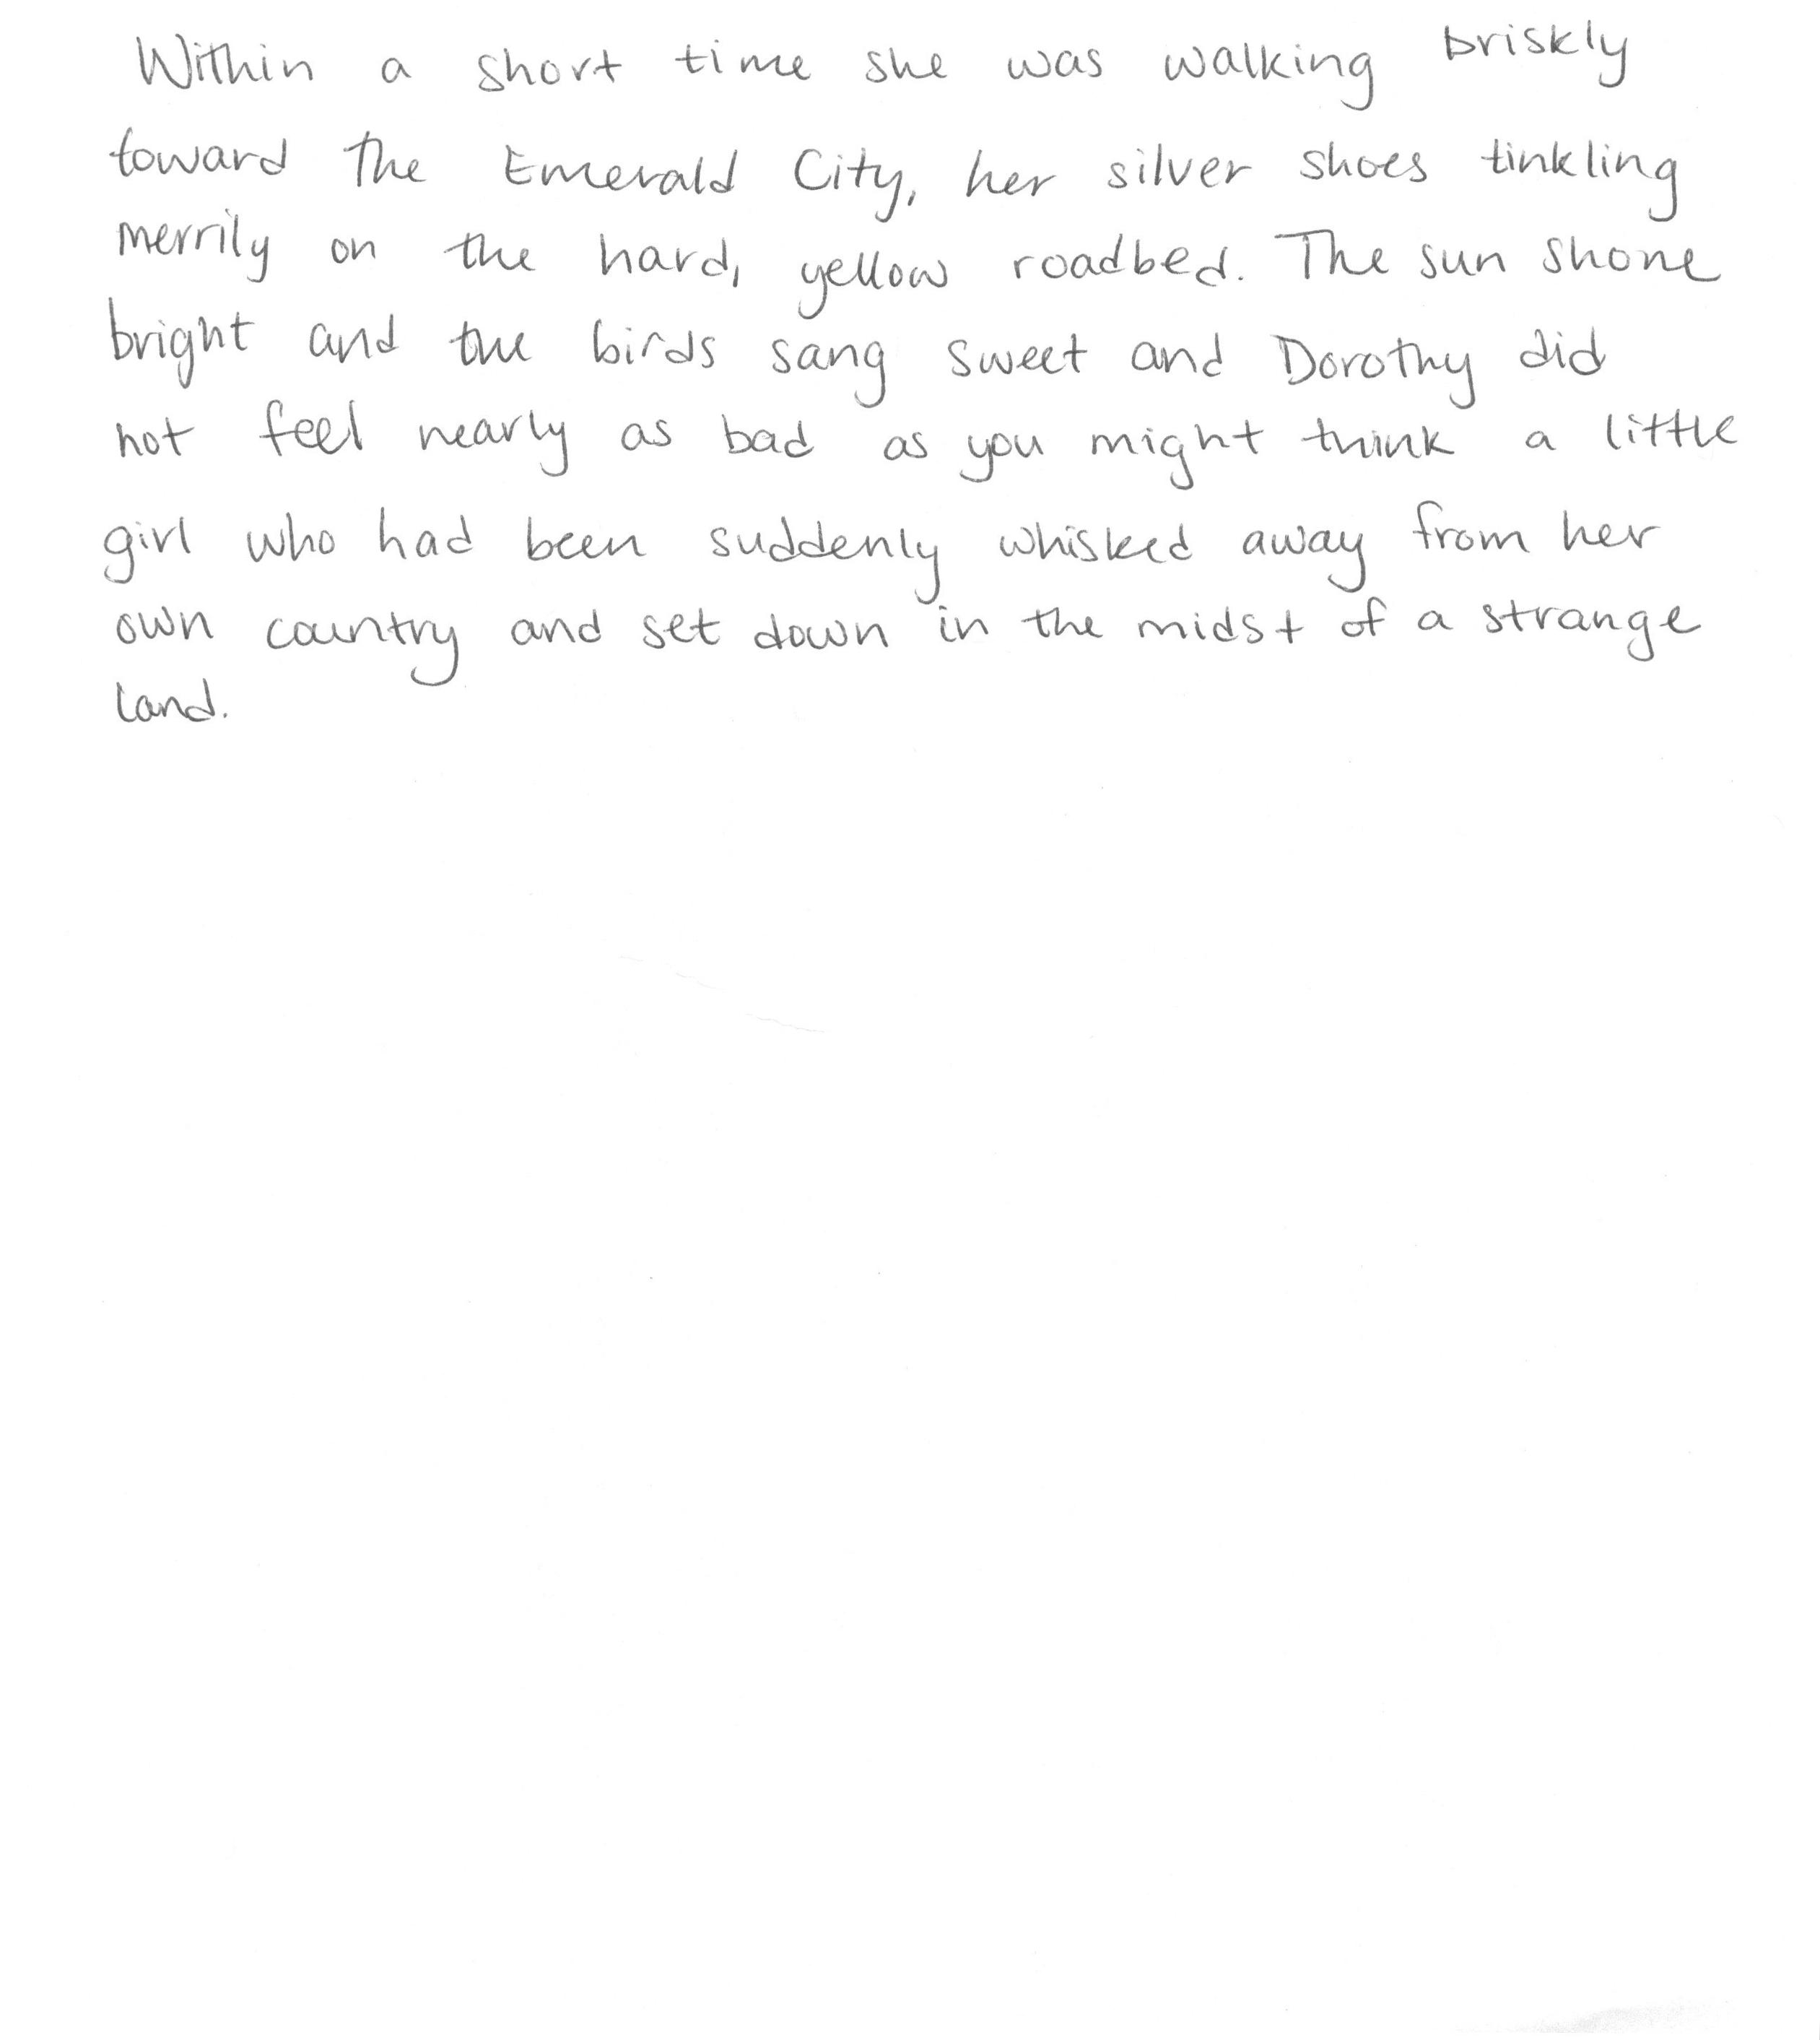 Within a short time she was walking briskly
toward the Emerald City, her silver shoes tinkling
merrily on the hard, yellow roadbed. The sun shone
bright and the birds sang sweet and Dorothy did
not feel nearly as bad as you might think a little
girl who had been suddenly whisked away from her
own country and set down in the midst of a strange
land.